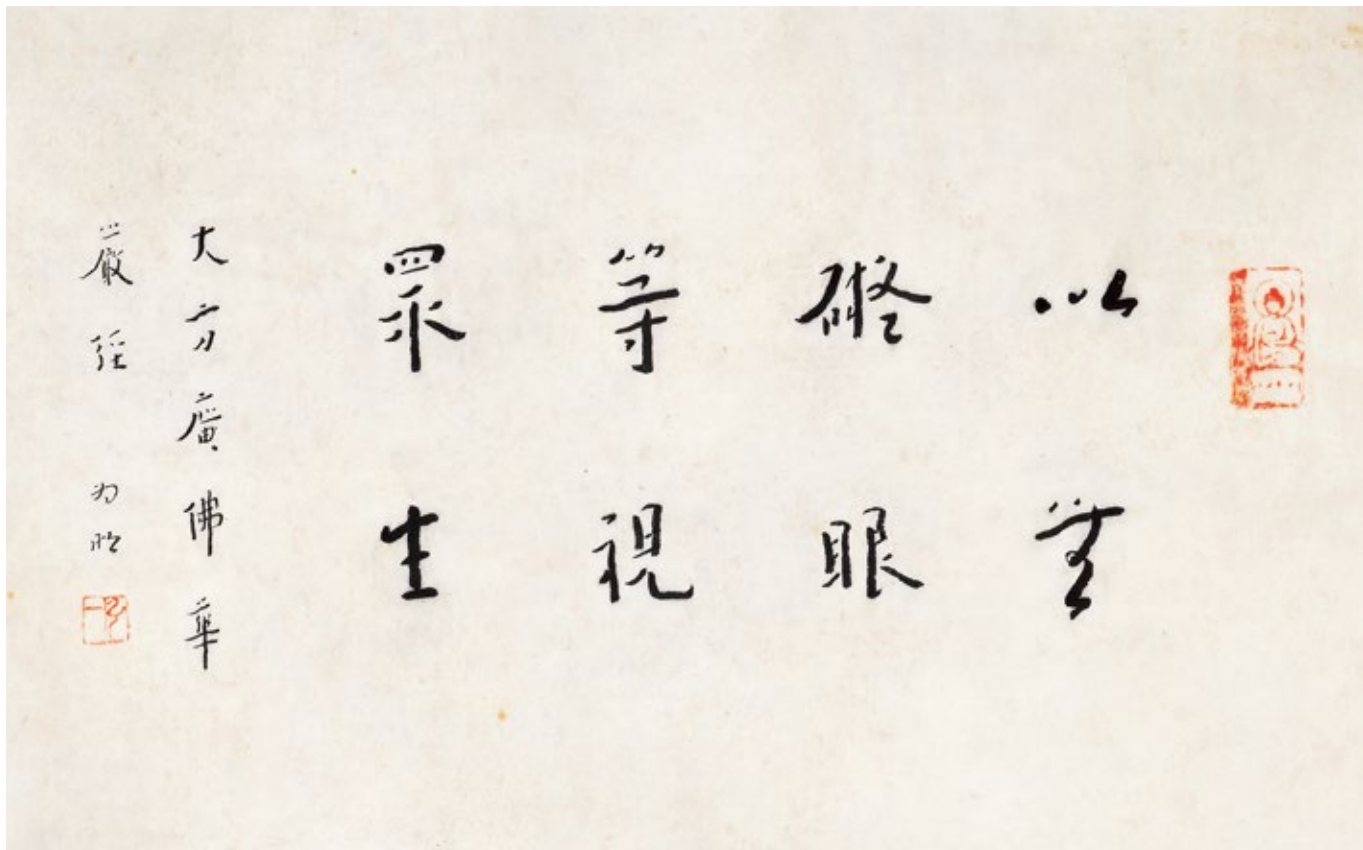 以無
礙眼
等視
眾生
大方廣佛華
嚴經